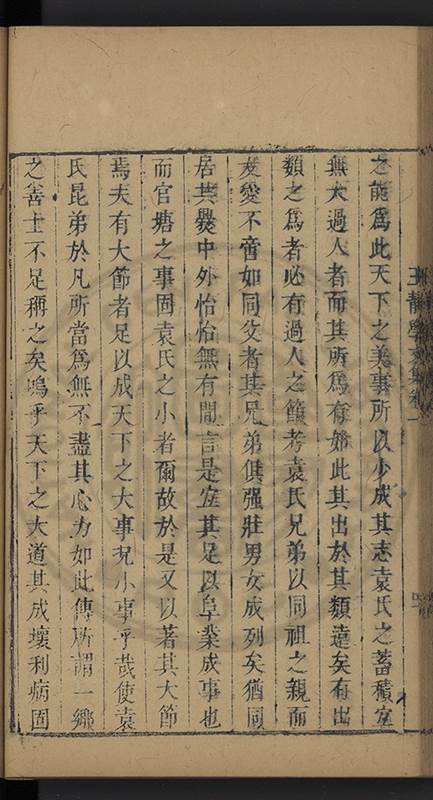 之能為此天下之美事所以少成其志袁氏之蓄積室
無大過人者而其所為有如此其出於其類遠矣有出
類之為者必有過人之節考袁氏兄弟以同祖之親而
友愛不啻如同父者其兄弟俱强壯男女成列矣猶同
居共爨中外怡怡無有間言是宜其足以阜業成事也
而官塘之事固袁氏之小者爾故於是又以著其大節
焉夫有大節者足以成天下之大事况小事乎哉使袁
氏昆弟於凡所當為無不盡其心力如此傳所謂一鄉
之善士不足稱之矣嗚乎天下之大道其成壞利病固